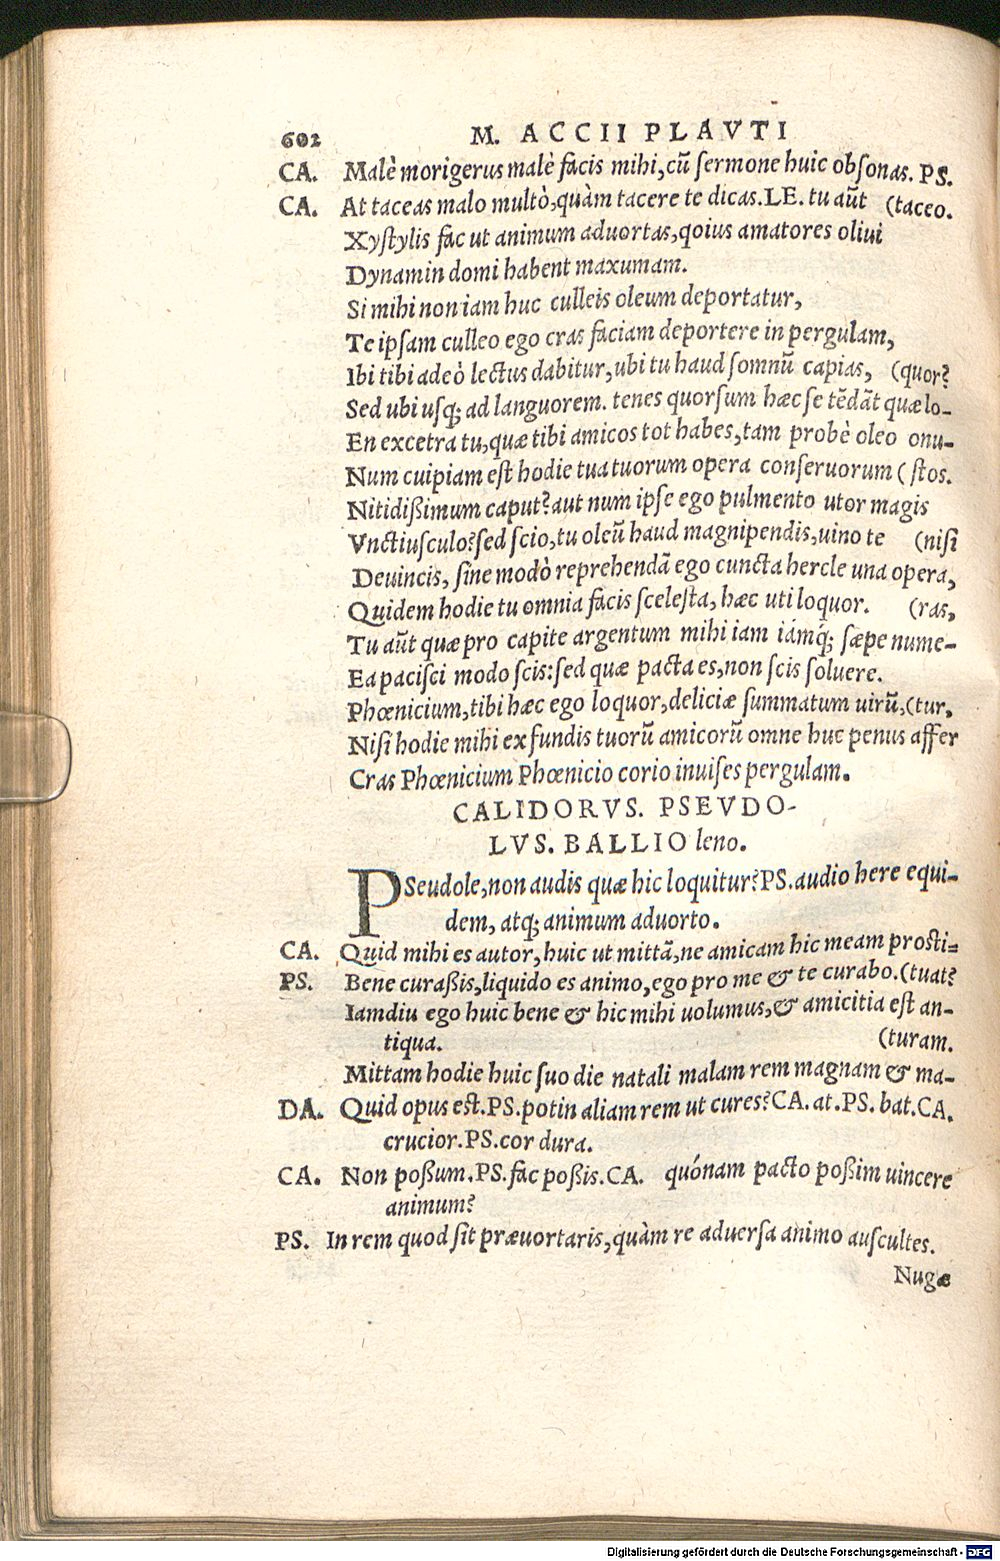 602 M. ACCII PLAVTI
CA. Malè morigerus malè facis mihi, cũ ſermone huic obſonas. PS.
CA. At taceas malo multò, quàm tacere te dicas. LE. tu aũt (taceo.
Xyſtylis fac ut animum aduortas, qoius amatores oliui
Dynamin domi habent maxumam.
Si mihi non iam huc culleis oleum deportatur,
Te ipſam culleo ego cras faciam deportere in pergulam,
Ibi tibi adeò lectus dabitur, ubi tu haud ſomnũ capias, (quor?
Sed ubi uſq; ad languorem. tenes quorſum hæc ſe tẽdãt quæ lo-
En excetra tu, quæ tibi amicos tot habes, tam probè oleo onu-
Num cuipiam eſt hodie tua tuorum opera conſeruorum (ſtos.
Nitidißimum caput? aut num ipſe ego pulmento utor magis
Vnctiuſculo? ſed ſcio, tu oleũ haud magnipendis, uino te (niſi
Deuincis, ſine modò reprehendã ego cuncta hercle una opera,
Quidem hodie tu omnia facis ſceleſta, hæc uti loquor. (ras,
Tu aũt quæ pro capite argentum mihi iam iámq́; ſæpe nume-
Ea paciſci modo ſcis: ſed quæ pacta es, non ſcis ſoluere.
Phœnicium, tibi hæc ego loquor, deliciæ ſummatum uirũ, (tur,
Niſi hodie mihi ex fundis tuorũ amicorũ omne huc penus affer
Cras Phœnicium Phœnicio corio inuiſes pergulam.
CALIDORVS. PSEVDO-
LVS. BALLIO leno.
PSeudole, non audis quæ hic loquitur? PS. audio here equi-
dem, atq; animum aduorto.
CA. Quid mihi es autor, huic ut mittã, ne amicam hic meam proſti-
PS. Bene curaßis, liquido es animo, ego pro me & te curabo. (tuat?
Iamdiu ego huic bene & hic mihi uolumus, & amicitia eſt an-
tiqua. (turam.
Mittam hodie huic ſuo die natali malam rem magnam & ma-
DA. Quid opus eſt. PS. potin aliam rem ut cures? CA. at. PS. bat. CA.
crucior. PS. cor dura.
CA. Non poßum. PS. fac poßis. CA. quónam pacto poßim uincere
animum?
PS. In rem quod ſit præuortaris, quàm re aduerſa animo auſcultes.
Nugæ
Digitalisierung gefördert durch die Deutsche Forschungsgemeinschaft - DFG